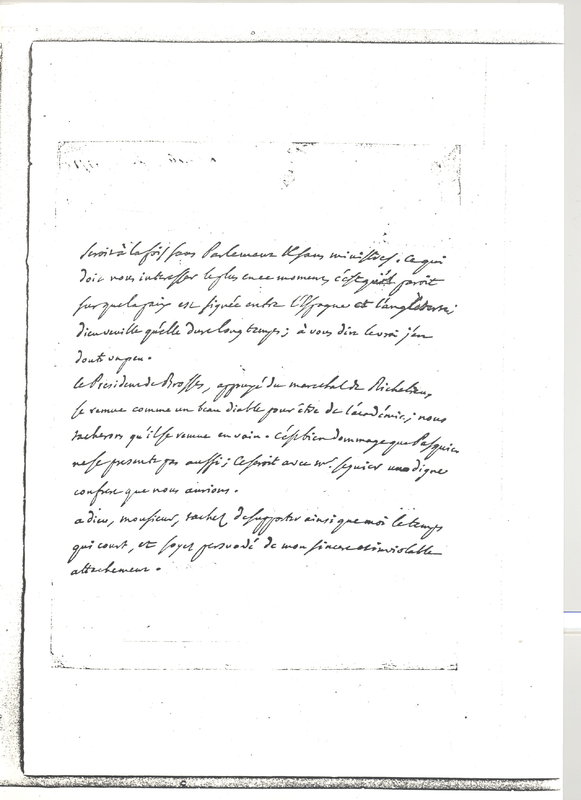 seroit à la fois sans Parlement et sans ministres. Ce qui
doit nous interesser le plus en ce moment, c'est qu'il paroît
sur que la paix est signée entre l'Espagne et l'angleterre;
dieu veuille qu'elle dure longtemps; à vous dire le vrai j'en
doute un peu.
le President de Brosses, appuyé du marechal de Richelieu,
se remue comme un beau diable pour être de l'académie; nous
tacherons qu'il se remue en vain. C'est bien dommage que Pasquier
ne se presente pas aussi; ce seroit avec mr. seguier un digne
confrere que nous aurions.
adieu, monsieur, tachez de supporter ainsi que moi le temps
qui court, et soyez persuadé de mon sincere et inviolable
attachement.